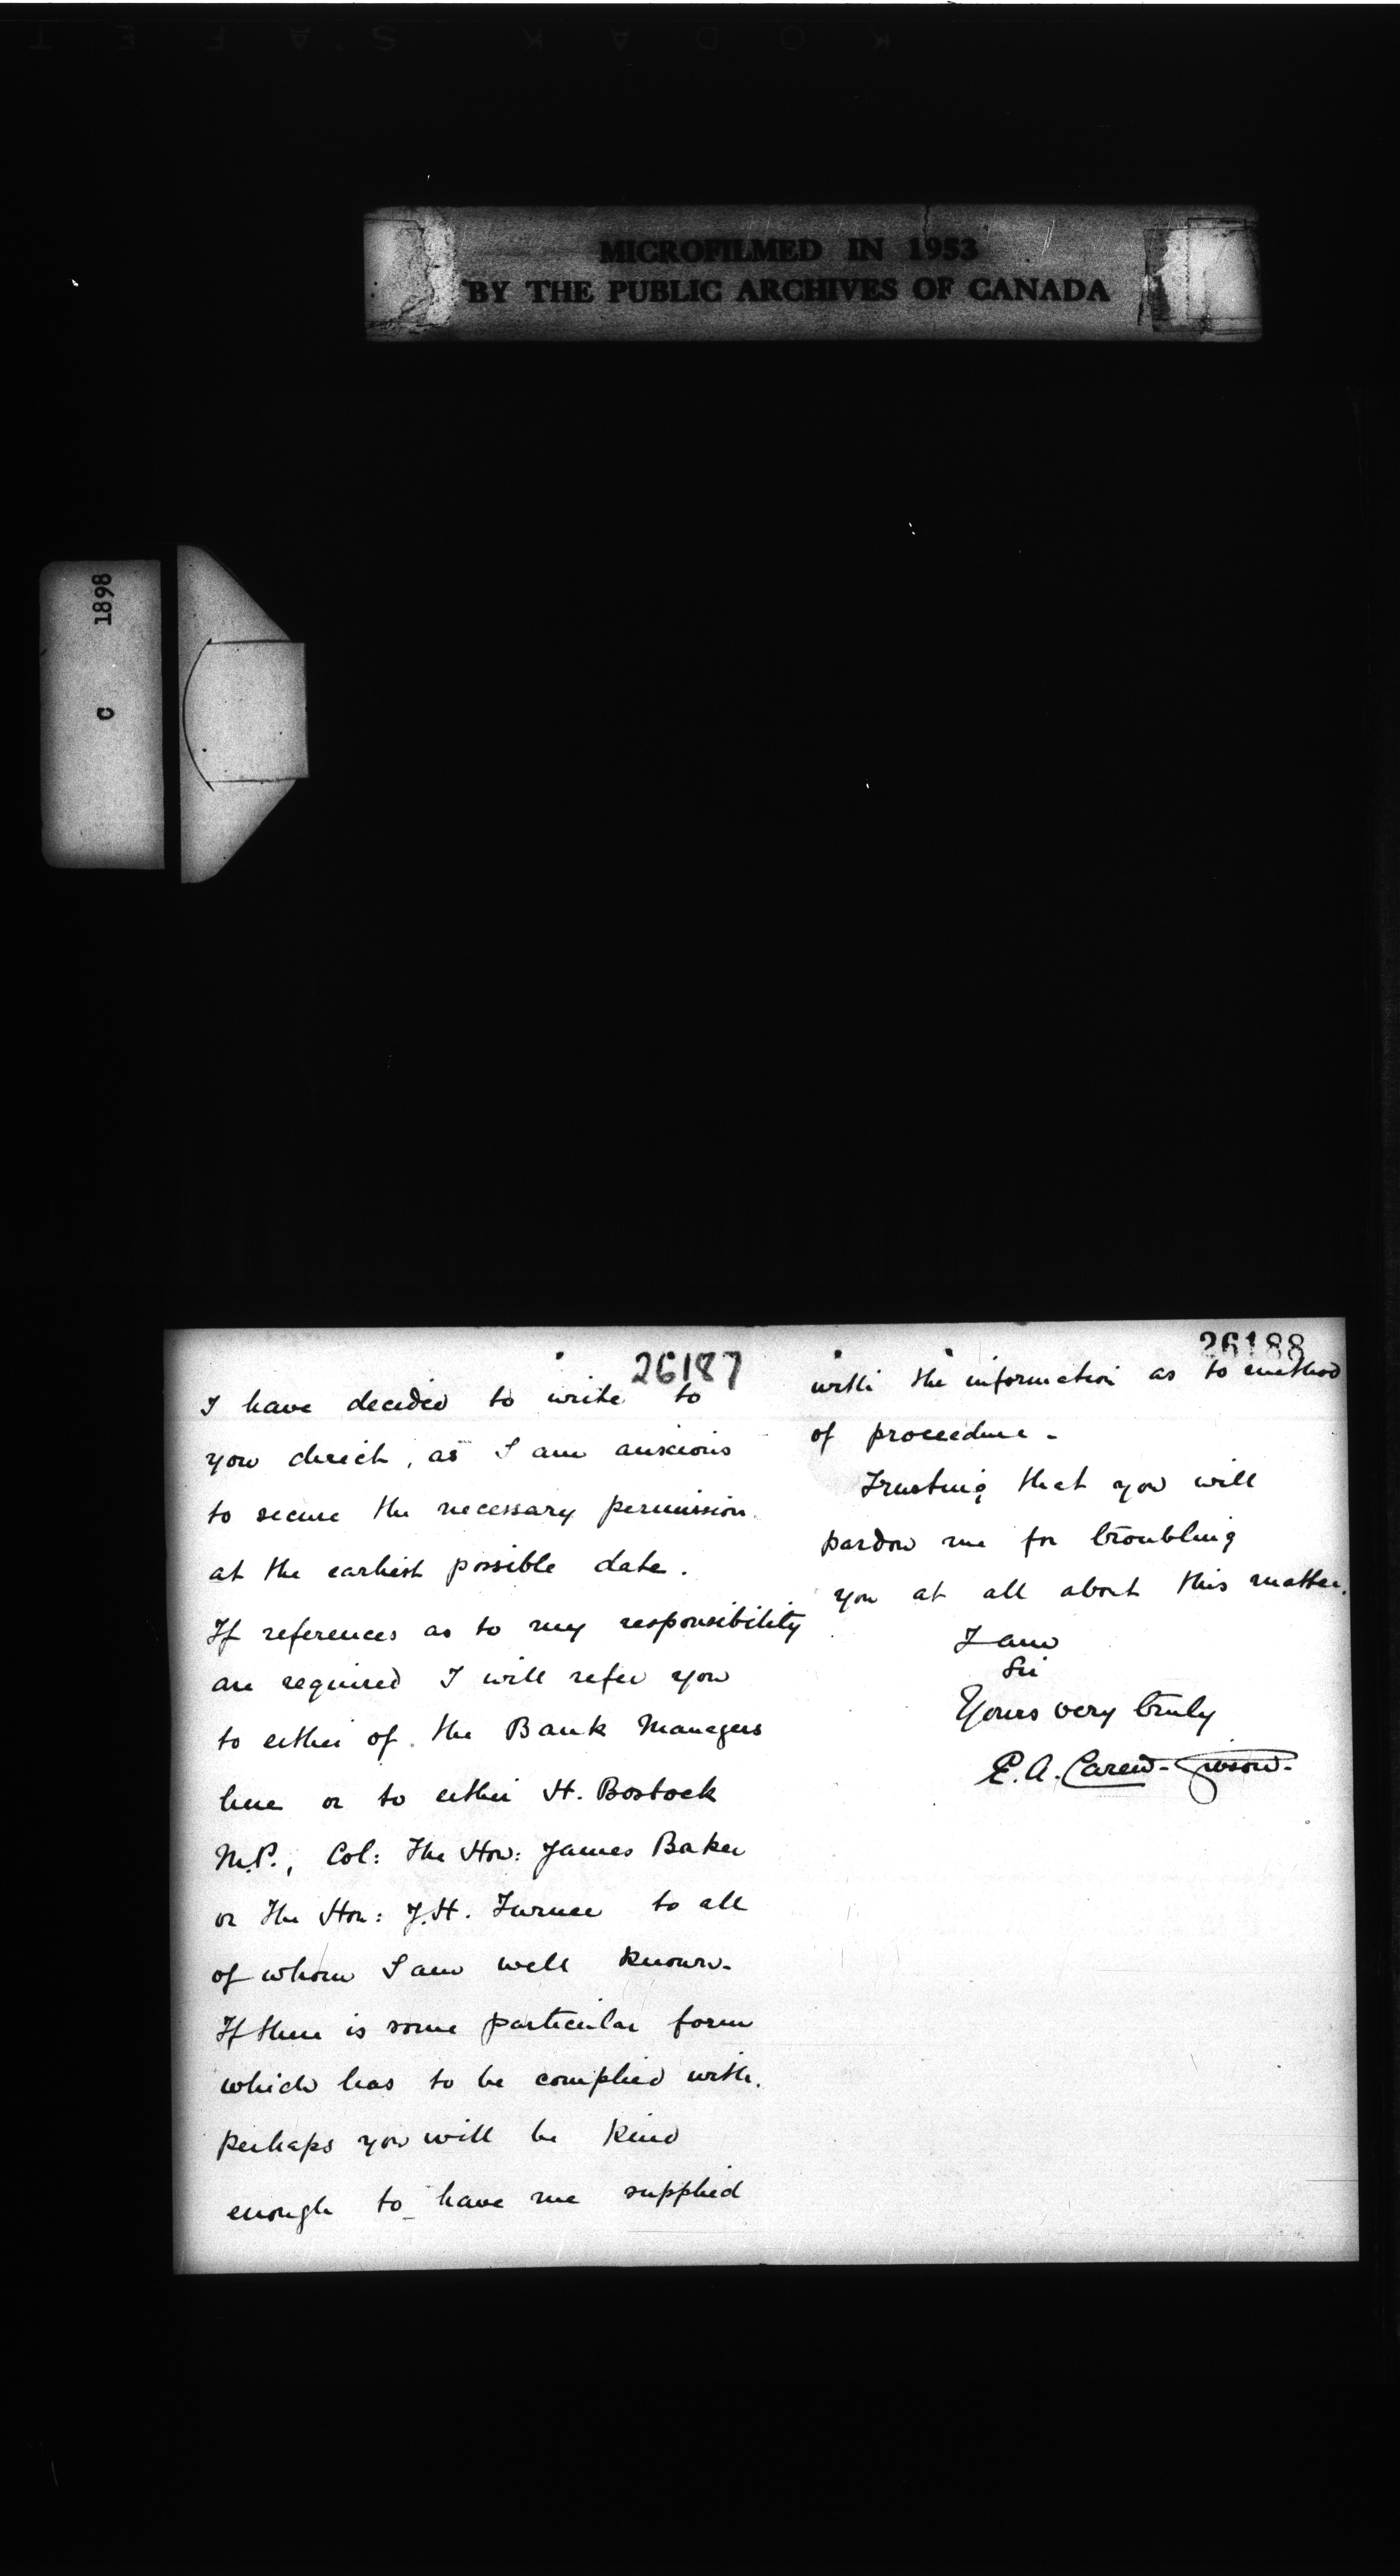 KODAK SAFET
MICROFILMED IN 1953
BY THE PUBLIC ARCHIVES OF CANADA
C 1898
26187
I have decided to write to
you direct, as I am anxious
to secure the necessary permission
at the earliest possible date.
If references as to my responsibility
are required I will refer you
to either of the Bank Managers
here or to either H. Bostock
M.P., Col: The Hon: James Baker
or The Hon: J.H. Turner to all
of whom I am well known.
If there is some particular form
which has to be complied with.
perhaps you will be kind
enough to have me supplied
26188
with the information as to method
of proceedure -
Trusting that you will
pardon me for troubling
you at all about this matter.
I am
Sir
Yours very truly
E. A. Carew-Gibson-